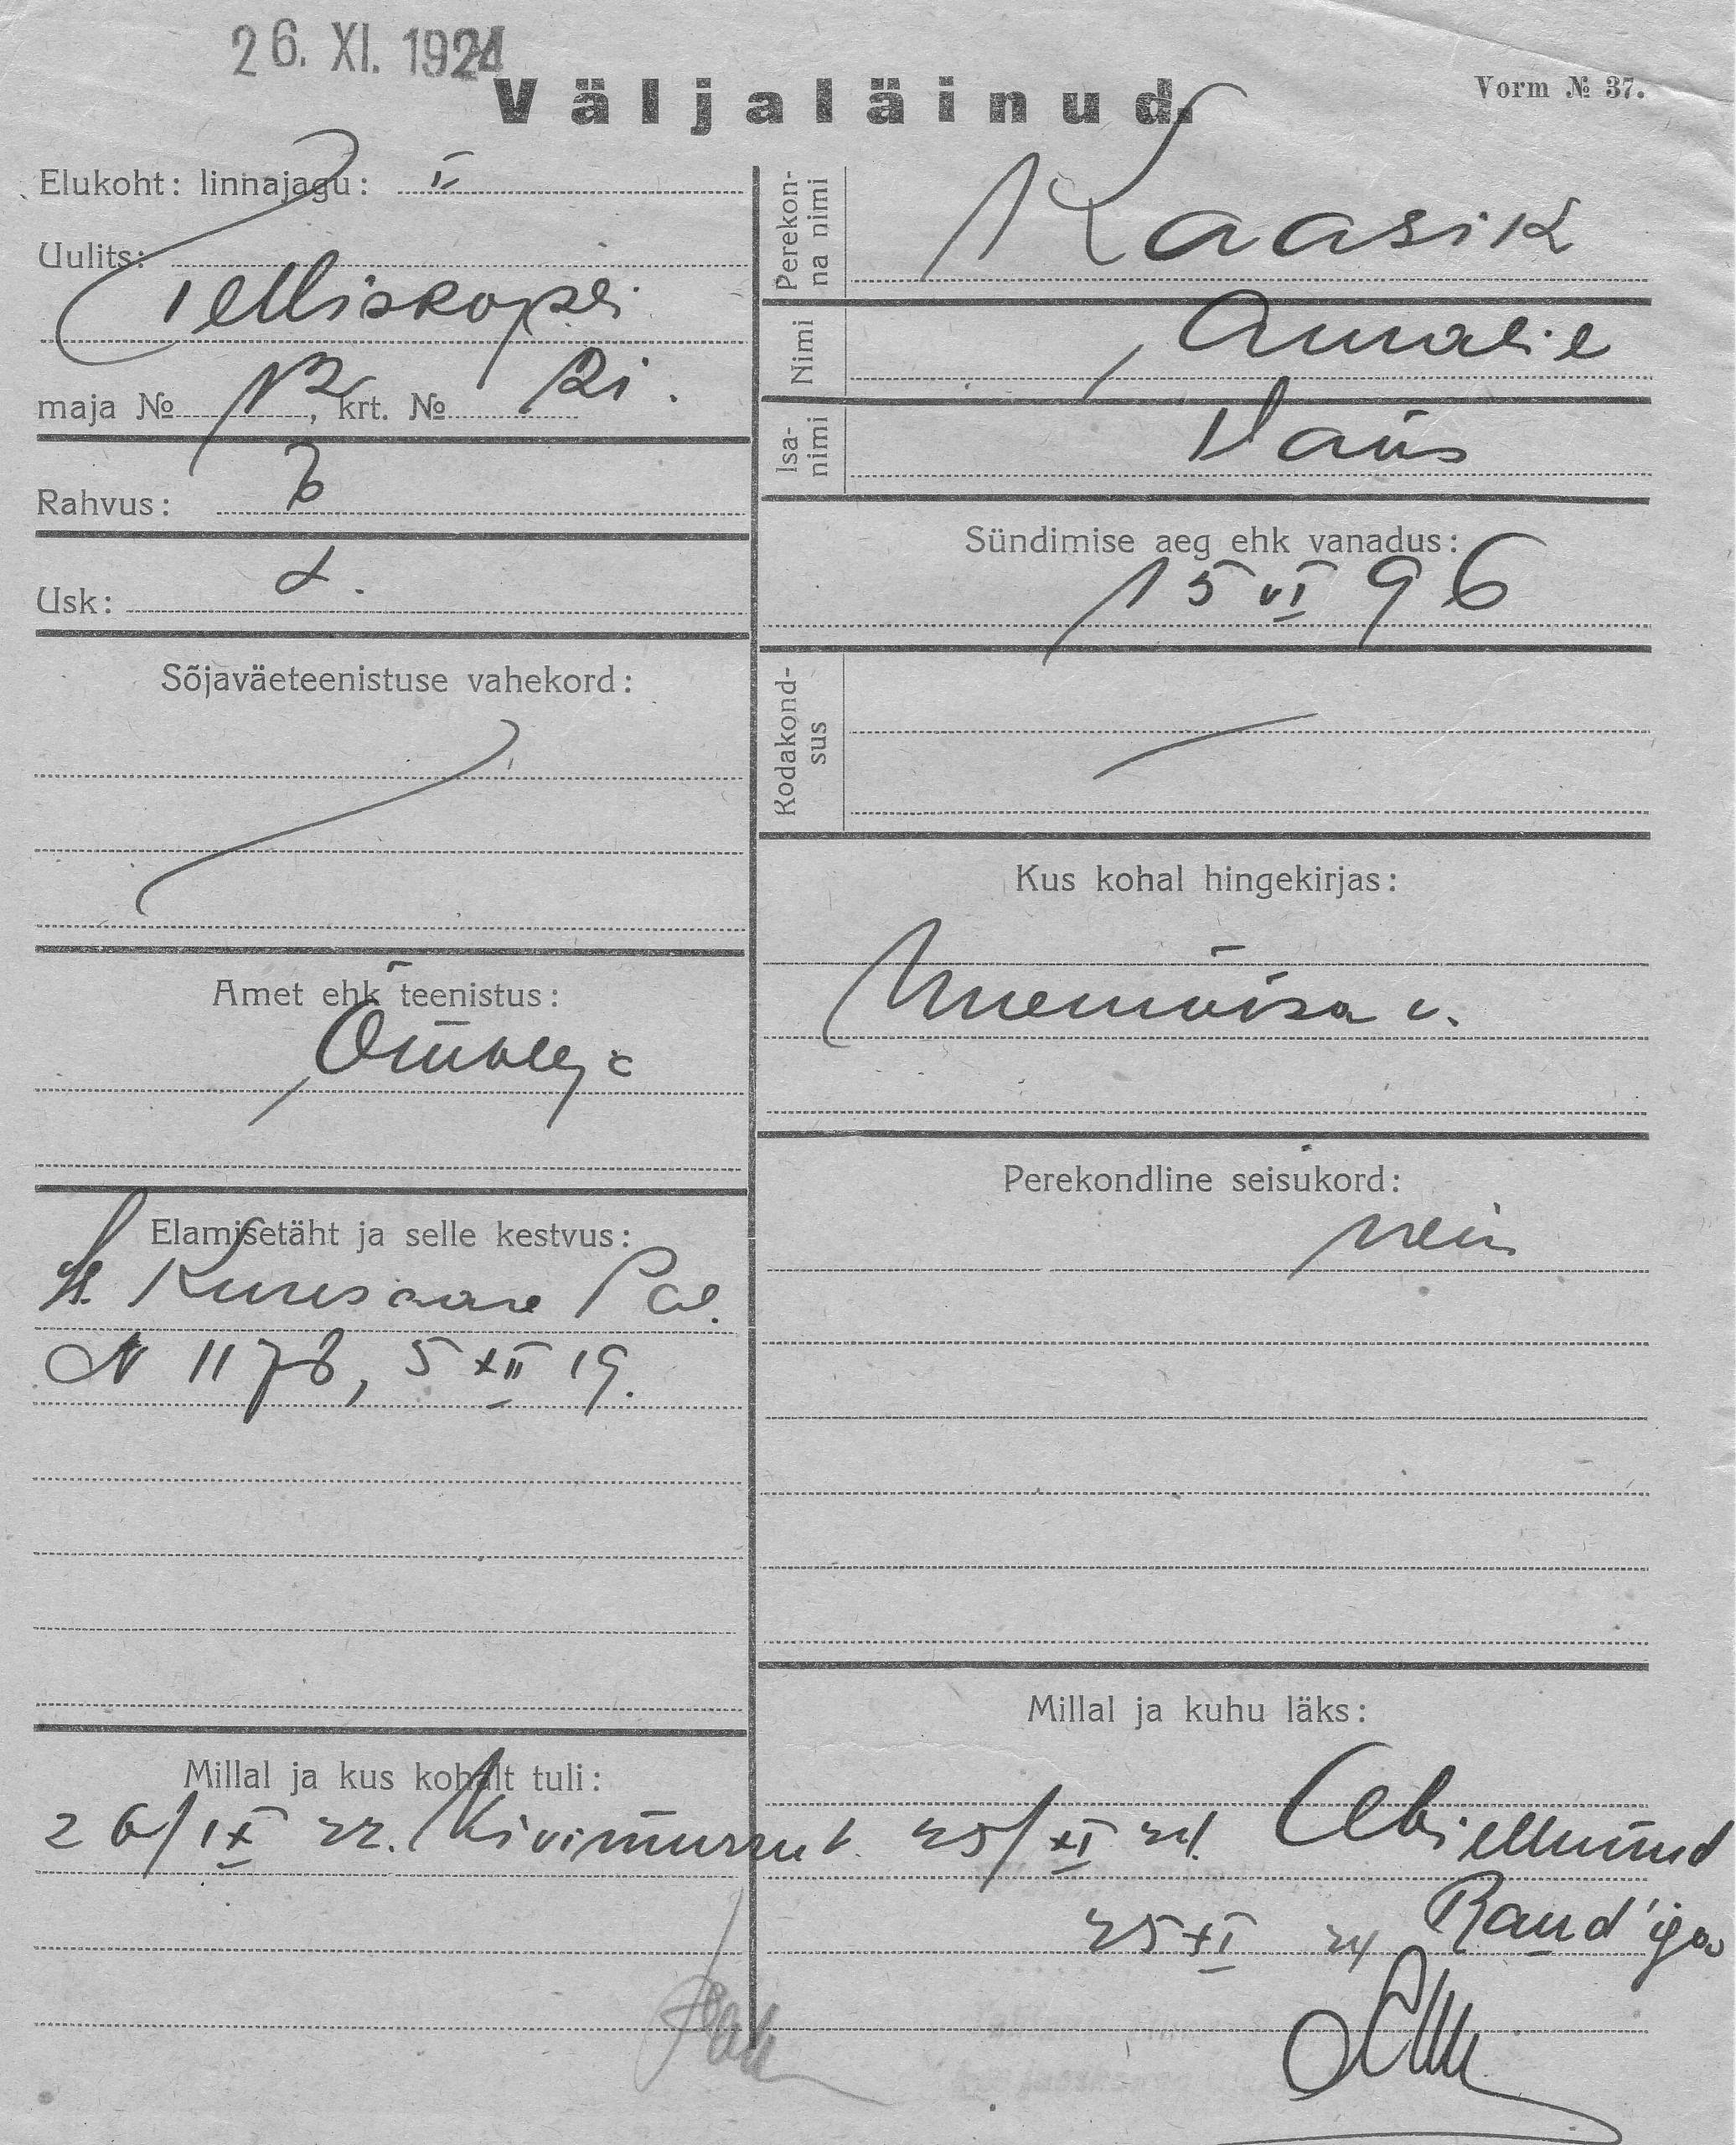 26. XI. 1924
Väljaläinud.
Vorm № 37.
Elukoht: linnajagu: II
Uulits:
Telliskopli
maja № 12, krt. № 2i.
Rahvus: E
Usk: L.
Sõjaväeteenistuse vahekord:
Amet ehk teenistus:
Õmbleja
Elamisetäht ja selle kestvus:
Kuresaare Pol.
N 1178, 5 XII 19.
Millal ja kus kohalt tuli:
26/IX 22. Kivimurru t.
Perekonna nimi
Kaasik
Nimi
Amalie
Isanimi
Sündimise aeg ehk vanadus:
15 VI 96
Kodakondsus
Kus kohal hingekirjas:
Uuemõisa v.
Perekondline seisukord:
Millal ja kuhu läks:
25/XI 24. Abiellunud
25 XI 24 Rand'iga